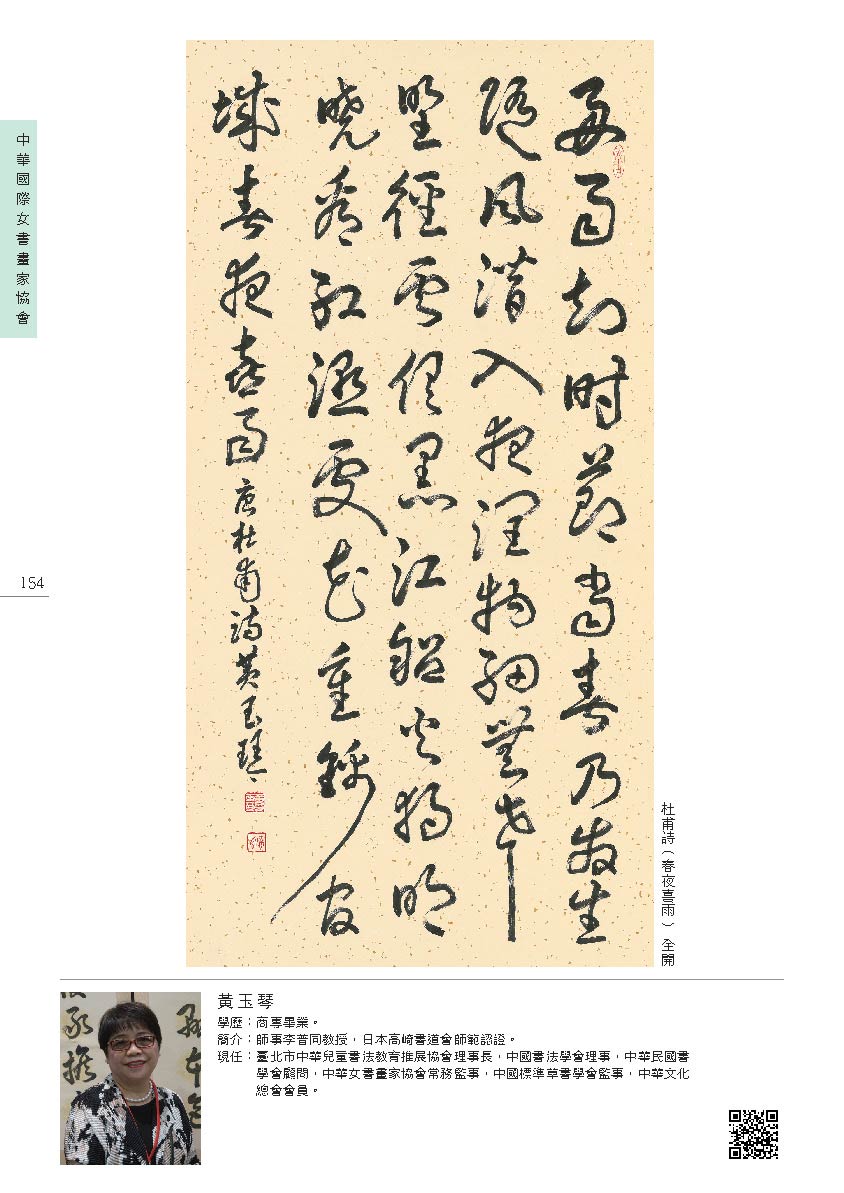 中華國際女書畫家協會
154
好雨知時節當春乃發生
隨風潛入夜潤物細無聲
野徑雲俱黑江船火獨明
曉看紅濕處花重錦官
城春夜喜雨唐杜甫詩黃玉琴
杜甫詩（春夜喜雨） 全開
黃玉琴
學歷：商專畢業。
簡介：師事李普同教授，日本高崎書道會師範認證。
現任：臺北市中華兒童書法教育推展協會理事長，中國書法學會理事，中華民國書
學會顧問，中華女書畫家協會常務監事，中國標準草書學會監事，中華文化
總會會員。